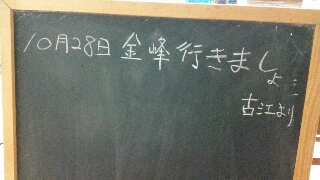 10月28日 金峰 行きましょ…
古江より